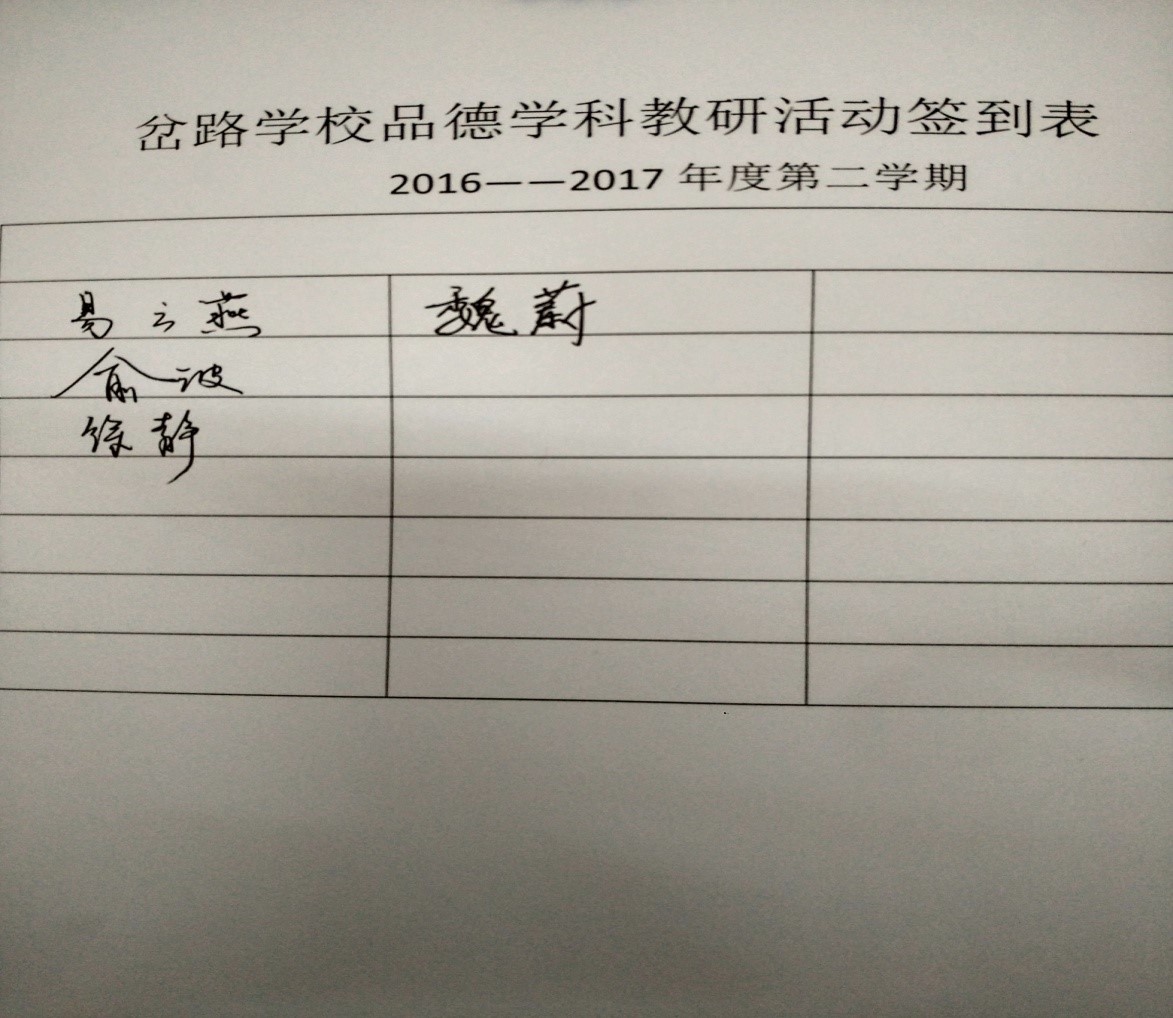 岔路学校品德学科教研活动签到表
2016——2017 年度第二学期
易云燕 魏蔚
俞波
徐静